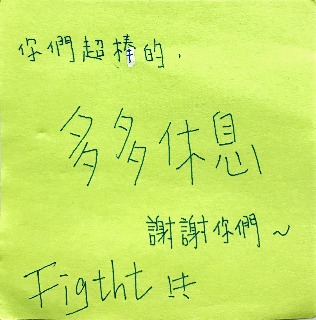 你們超棒的.
多多休息
謝謝你們~
Figtht !!